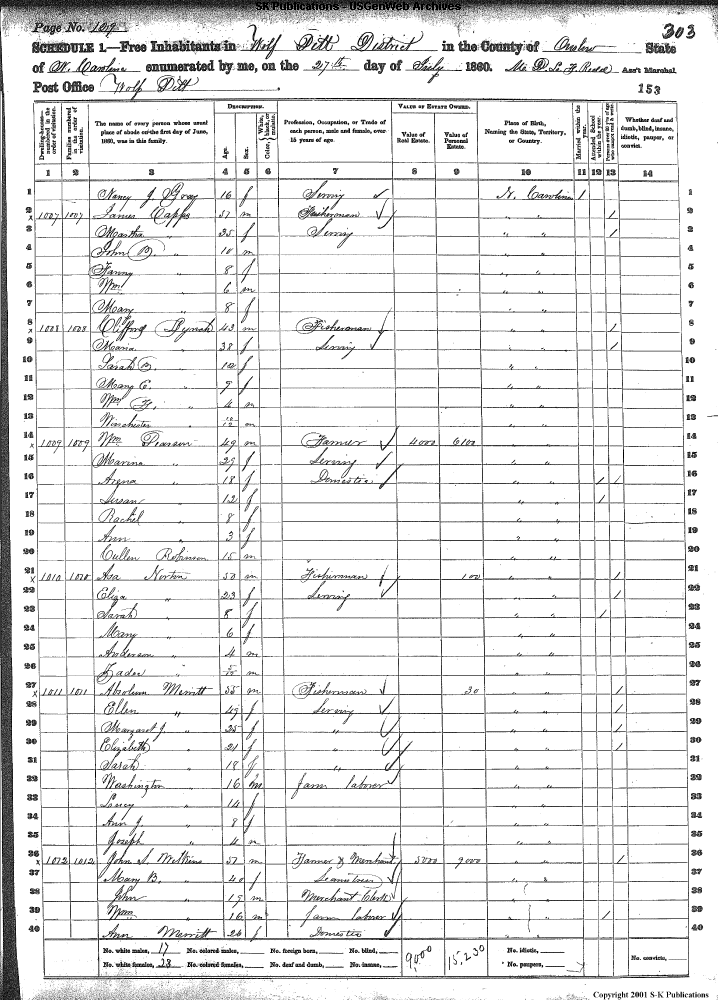 SK Publications - USGenWeb Archives
Page No. 109
303
SCHEDULE 1.—Free Inhabitants in Wolf Pitt District in the County of Onslow State
of N. Carolina enumerated by me, on the 27th day of July 1860. Ass't Marshal
Post Office Wolf Pitt
153
DESCRIPTION.
VALUE OF ESTATE OWNED.
Dwelling-houses—numbered in the order of visitation.
Families numbered in the order of visitation.
The name of every person whose usual place of abode on the first day of June, 1860, was in this family.
Age.
Sex.
Color, White, black, or mulatto.
Profession, Occupation, or Trade of each person, male and female, over 15 years of age.
Value of Real Estate.
Value of Personal Estate.
Place of Birth, Naming the State, Territory, or Country.
Married within the year.
Attended School within the year.
Whether deaf and dumb, blind, insane, idiotic, pauper, or convict.
1 2 3 4 5 6 7 8 9 10 11 12 13 14
1 Nancy J Gray 16 f Serving N. Carolina 1 1
2 1007 1007 James Capps 51 m Fisherman " " / 2
3 Martha " 25 f Serving " " / 3
4 John B. " 10 m 4
5 Fanny 8 f " " 5
6 Wm 6 m " " 6
7 Mary " 8 f " " 7
8 1008 1008 Clifford 43 m Fisherman " " / 8
9 Maria " 38 f Serving " " / 9
10 Sarah B. 10 f " " 10
11 Mary E. " 9 f " " 11
12 Wm F. " 4 m " " 12
13 Winchester " m " " 13
14 1009 1009 Wm Pearson 49 m Farmer 4000 6100 " " 14
15 Marina " 29 f Serving " " 15
16 Arena " 18 f Domestic " " / / 16
17 Susan " 12 f " " / 17
18 Rachel " 8 f " " 18
19 Ann " 3 f " " 19
20 Cullen Robinson 15 m " " 20
21 1010 1010 Asa Norton 50 m Fisherman 100 " " / 21
22 Eliza " 23 f Serving " " / 22
23 Sarah " 8 f " " / 23
24 Mary " 6 f " " 24
25 Anderson " 4 m " " 25
26 " m " " 26
27 1011 1011 Absolum Merritt 55 m Fisherman 30 " " / 27
28 Ellen " 49 f Serving " " / 28
29 Margaret J. " 25 f " " " / 29
30 Elizabeth " 21 f " " " / 30
31 Sarah " 18 f " " " " 31
32 Washington " 16 m farm laborer " " 32
33 Lucy " 14 f 33
34 Ann J. " 8 f " " 34
35 Joseph " 4 m 35
36 1012 1012 John S. 51 m Farmer & Merchant 5000 9000 " " / 36
37 Mary B. " 40 f Seamstress " " 37
38 John " 19 m Merchant Clerk 38
39 Wm " 16 m farm laborer / 39
40 Ann Merritt 26 f Domestic 40
No. white males, 17 No. colored males, No. foreign born, No. blind, 9,000 15,230 No. idiotic,
No. white females, 23 No. colored females, No. deaf and dumb, No. insane, No. paupers, No. convicts,
Copyright 2001 S-K Publications